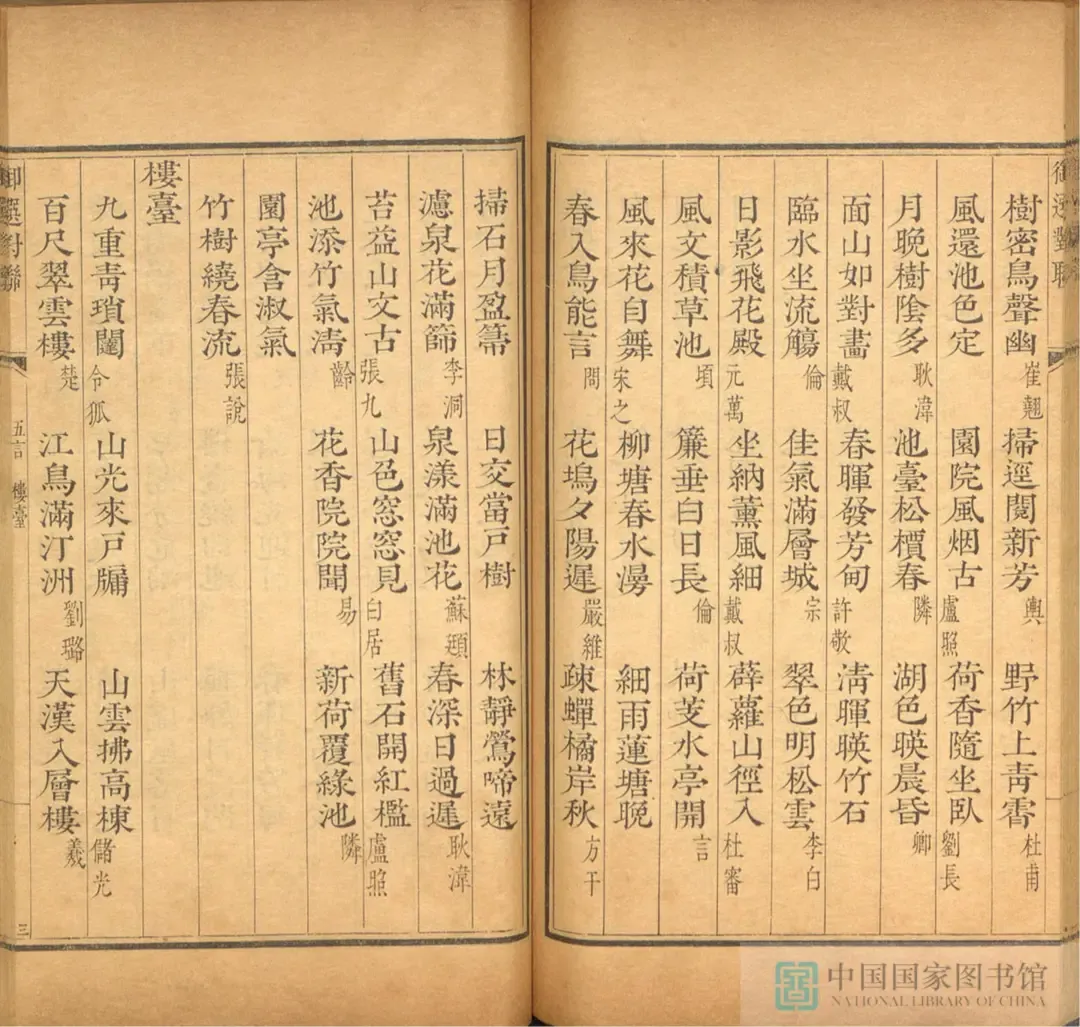 御選對聯
樹密鳥聲幽 崔翹 掃逕閱新芳 輿 野竹上靑霄 杜甫
風還池色定 園院風烟古 盧照 荷香隨坐臥 劉長
月晚樹陰多 耿湋 池臺松檟春 隣 湖色暎晨昏 卿
面山如對畵 戴叔 春暉發芳甸 許敬 淸暉暎竹石
臨水坐流觴 倫 佳氣滿層城 宗 翠色明松雲 李白
日影飛花殿 元萬 坐納薰風細 戴叔 薜蘿山徑入 杜審
風文積草池 頃 簾垂白日長 倫 荷芰水亭開 言
風來花自舞 宋之 柳塘春水漫 細雨蓮塘晚
春入鳥能言 問 花塢夕陽遲 嚴維 疎蟬橘岸秋 方干
掃石月盈箒 日交當戸樹 林靜鶯啼遠
濾泉花滿篩 李洞 泉漾滿池花 蘇頲 春深日過遲 耿湋
苔益山文古 張九 山色窓窓見 白居 舊石開紅檻 盧照
池添竹氣淸 齡 花香院院聞 易 新荷覆綠池 隣
園亭含淑氣
竹樹繞春流 張說
樓臺
九重靑瑣闥 令狐 山光來戸牖 山雲拂高棟 儲光
百尺翠雲樓 楚 江鳥滿汀洲 劉璐 天漢入層樓 羲
御選對聯 五言 樓臺 三
中国国家图书馆
NATIONAL LIBRARY OF CHINA